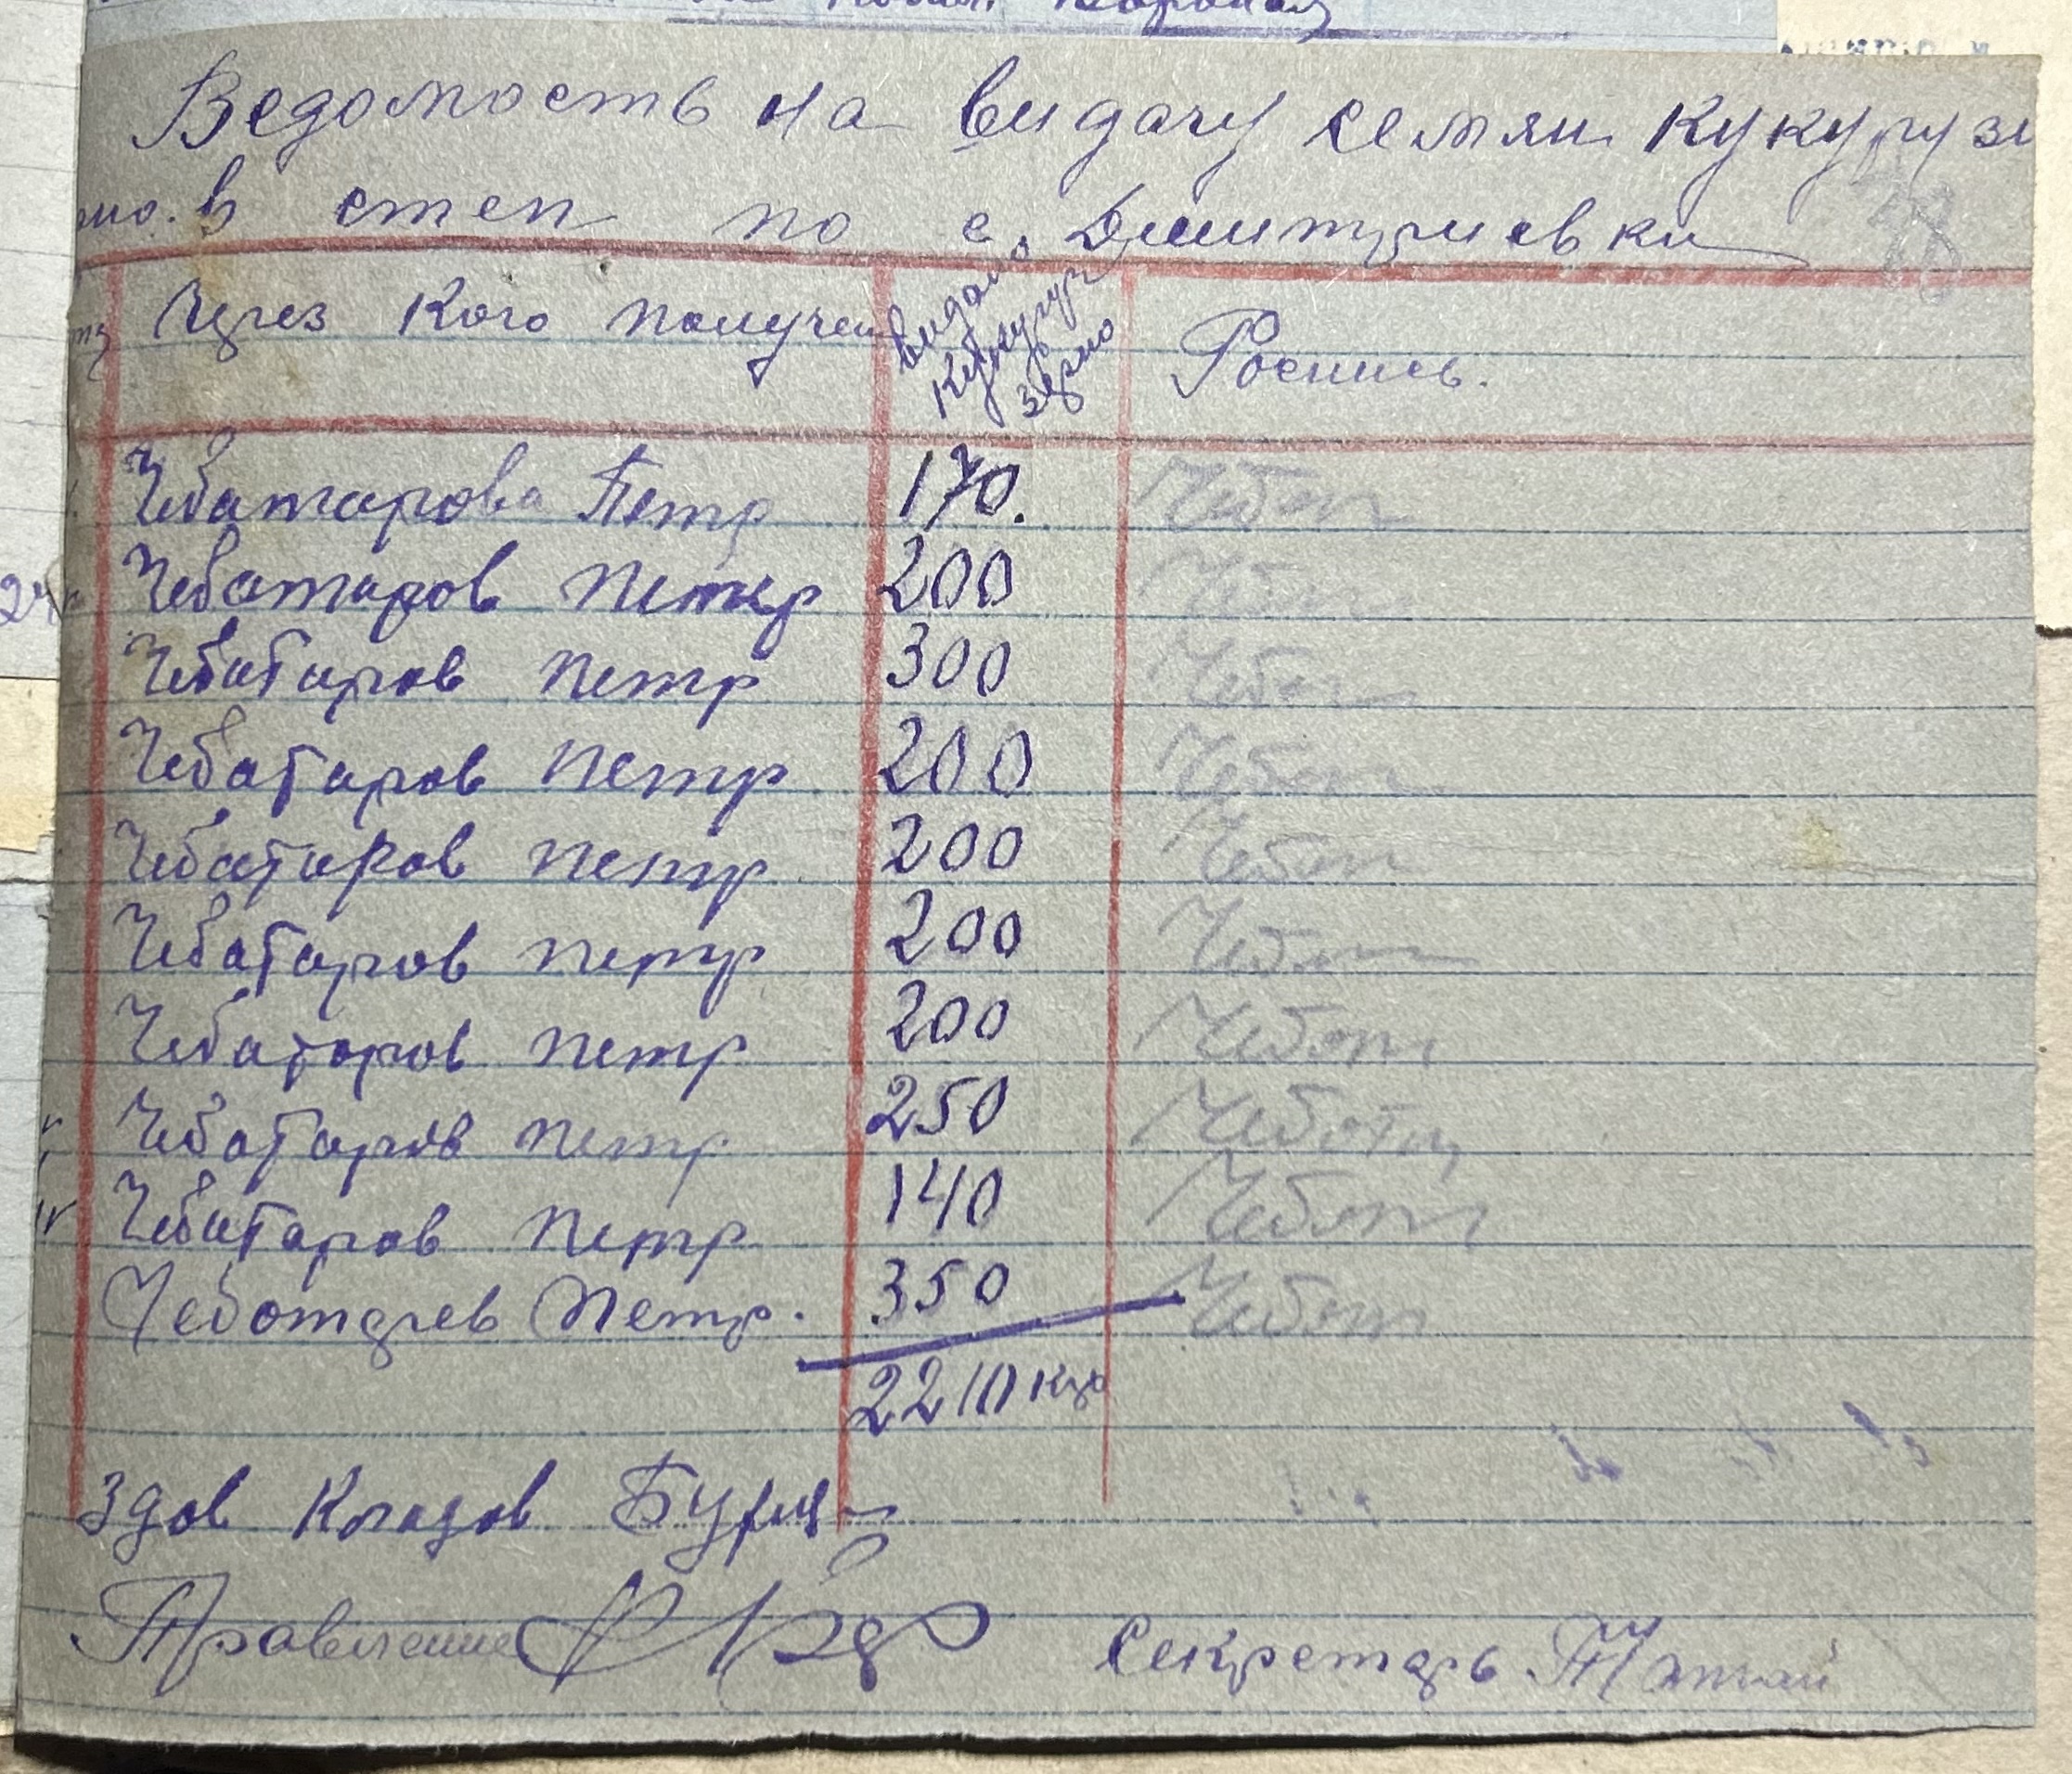 Ведомость на видачу семян кукурузи
в степ по с. Дмитриевки
Через кого получен
видано кукуруз зерно
Роспись.
Чебатарова Петр 170. Чебот
Чебатаров Петр 200 Чебот
Чебатаров Петр 300 Чебот
Чебатаров Петр 200 Чебот
Чебатаров Петр 200 Чебот
Чебатаров Петр 200 Чебот
Чебатаров Петр 200 Чебот
Чебатаров Петр 250 Чебот
Чебатаров Петр 140 Чебот
Чеботарев Петр. 350 Чебот
2210 кг
Правление
Секретарь